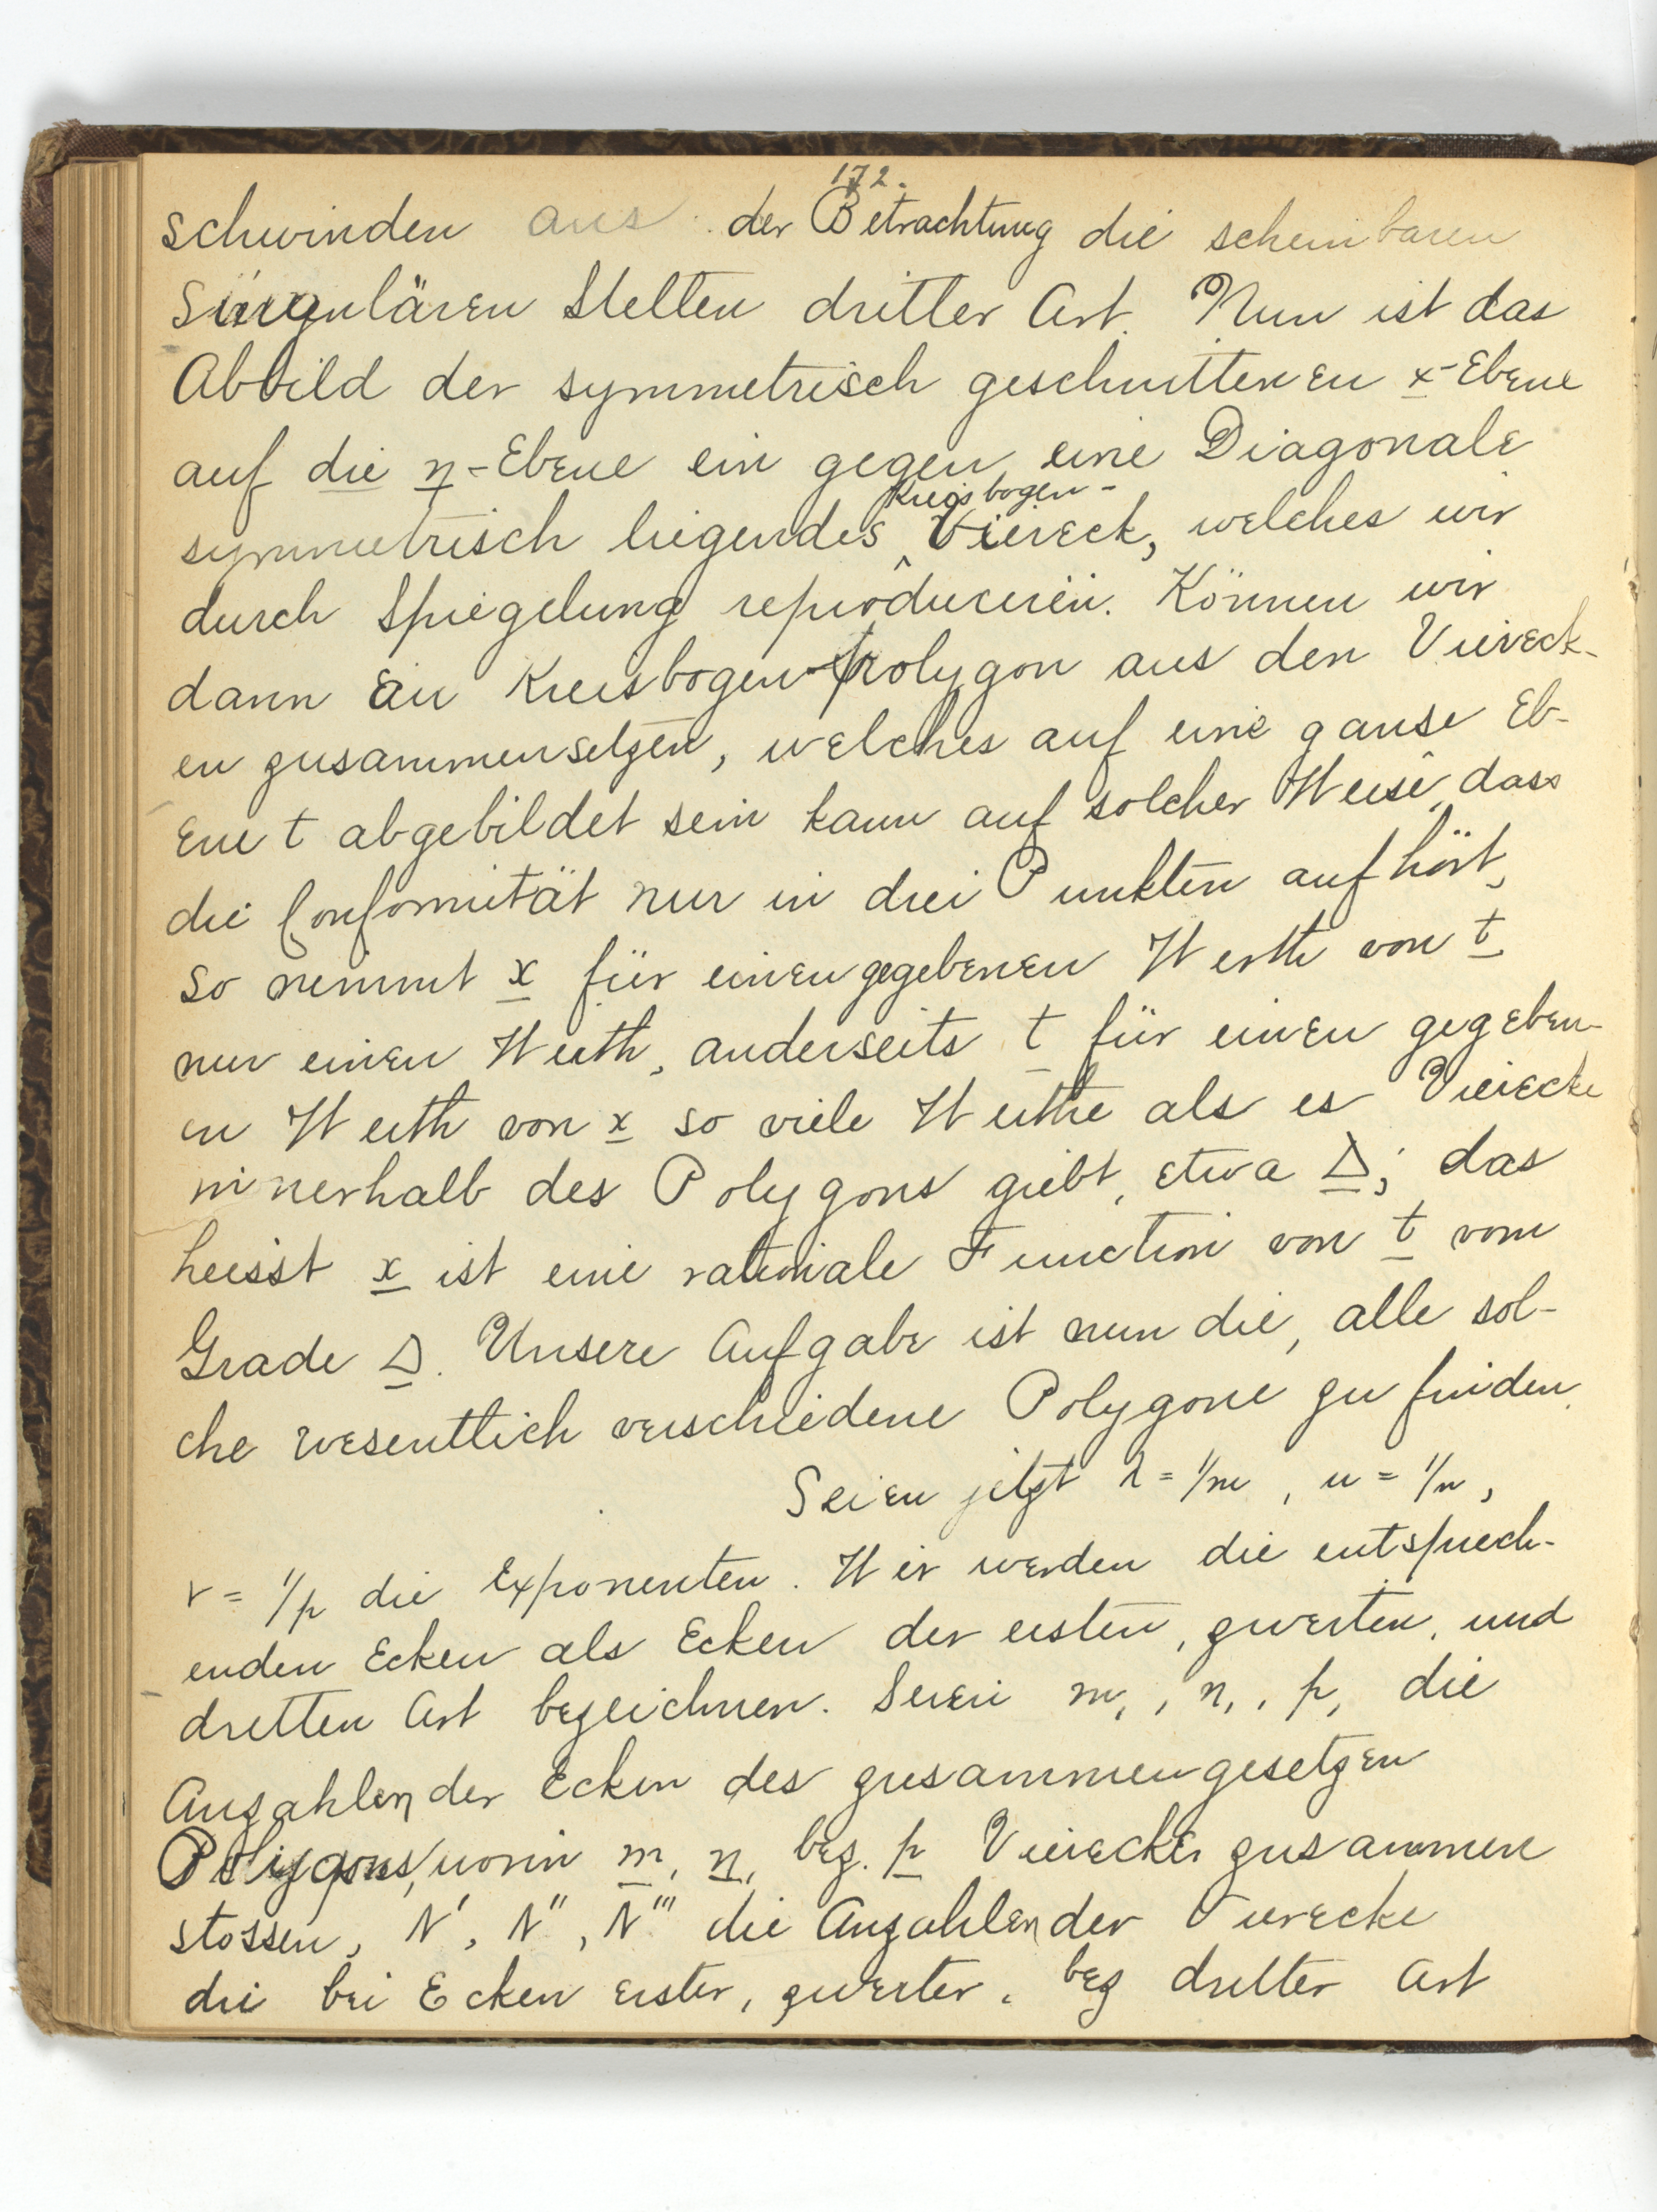 172.
schwinden aus der Betrachtung die scheinbaren
singulären Stellen dritter Art. Nun ist das
Abbild der symmetrisch geschnittenen x-Ebene
auf die η-Ebene ein gegen eine Diagonale
Kreisbogen-
symmetrisch liegendes Viereck, welches wir
durch Spiegelung reproduciren. Können wir
dann ein Kreisbogen-polygon aus den Viereck-
en zusammensetzen, welches auf eine ganse Eb-
ene t abgebildet sein kann auf solcher Weise, dass
die Conformität nur in drei Punkten aufhört,
so nimmt x für einen gegebenen Werth von t
nur einen Werth, anderseits t für einen gegeben-
en Werth von x so viele Werthe als es Vierecke
innerhalb des Polygons giebt, etwa Δ; das
heisst x ist eine rationale Function von t vom
Grade Δ. Unsere Aufgabe ist nun die, alle sol-
che wesentlich verschiedene Polygone zu finden.
Seien jetzt λ = 1/m, μ = 1/n,
ν = 1/p die Exponenten. Wir werden die entsprech-
enden Ecken als Ecken der ersten, zweiten, und
dritten Art bezeichnen. Seien m₁, n₁, p₁ die
Anzahlen der Ecken des zusammengesetzen
Polygons, worin m, n, bez. p Vierecke zusammen
stossen, N', N'', N''' die Anzahlen der Vierecke
die bei Ecken erster, zweiter, bez dritter Art